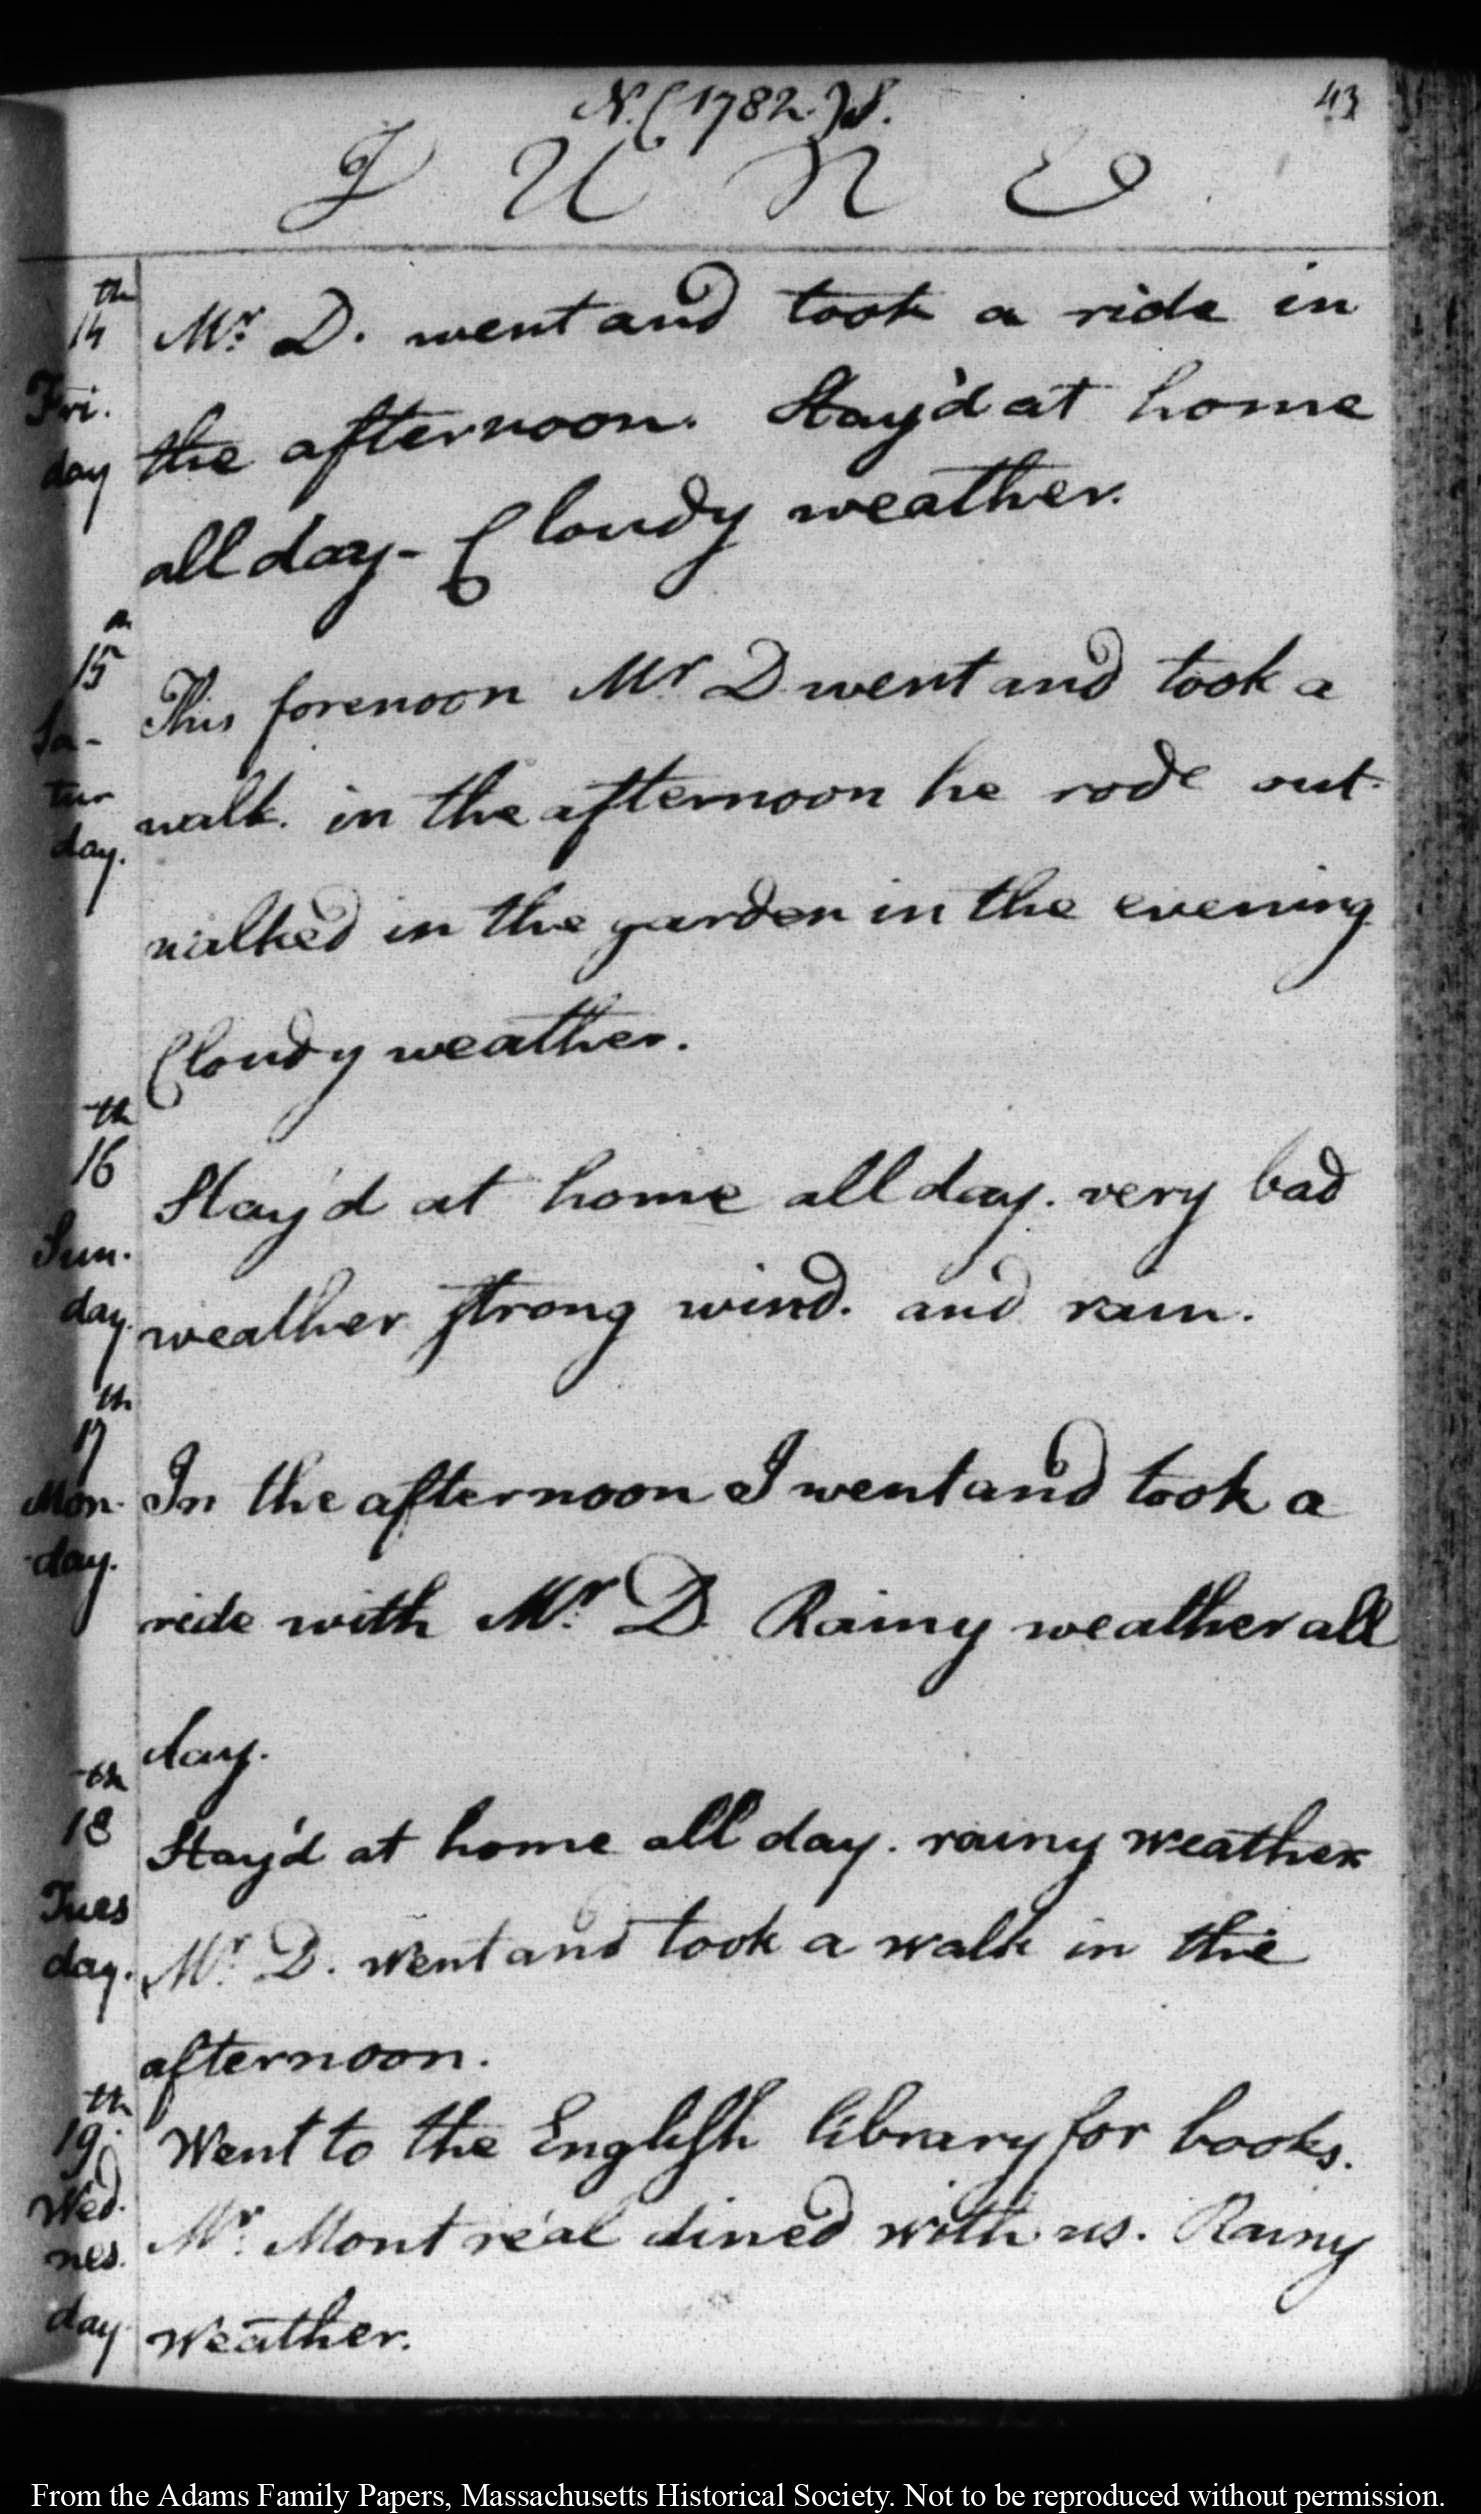 N. (1782.) S.
43
J U N E
14th
Friday
Mr. D. went and took a ride in
the afternoon. Stay'd at home
all day - Cloudy weather.
15
Sa-
tur
day.
This forenoon Mr D went and took a
walk. in the afternoon he rode out.
walked in the garden in the evening
Cloudy weather.
16th
Sun.
day.
Stay'd at home all day. very bad
weather strong wind. and rain.
17th
Mon-
-day.
In the afternoon I went and took a
ride with Mr. D. Rainy weather all
day.
18th
Tues
day.
Stay'd at home all day. rainy weather
Mr. D. went and took a walk in the
afternoon.
19th
Wed.
nes.
day
Went to the English library for books.
Mr. Montréal dined with us. Rainy
weather.
From the Adams Family Papers, Massachusetts Historical Society. Not to be reproduced without permission.